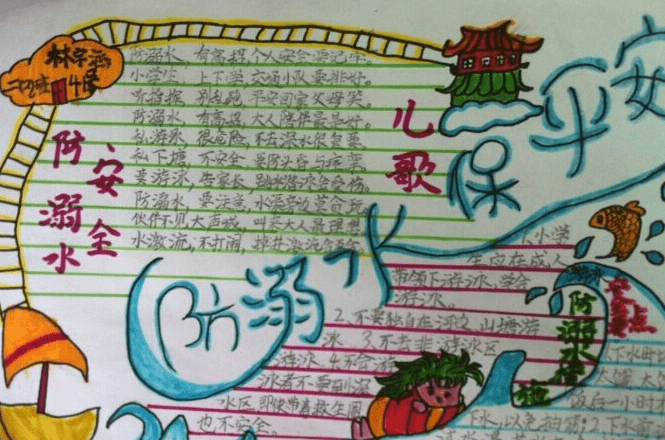 防溺水安全
儿歌
防溺水，有高招，个人安全要记牢。
小学生，上下学，交通小队要排好。
听指挥，别乱跑，平安回家父母笑。
防溺水，有高招，大人陪伴最是好。
私游泳，很危险，不去深水很重要。
私下塘，不安全，要防头昏与痉挛。
要游泳，告家长，
防溺水，要注意，水深旁边莫合玩。
伙伴不见大声喊，叫来大人最理想
水激流，不打闹，
防溺水
保平安
1.小学
生应在成人
带领下游泳，学会
游泳。
2.不要独自在河边、山塘游
泳 3.不去非游泳区
游泳 4.不会游
泳者不要到深
水区 即使带着救生圈
也不安全。
防溺水措施
下水时
饭后一小时
下水，以免抽筋；2.下水前